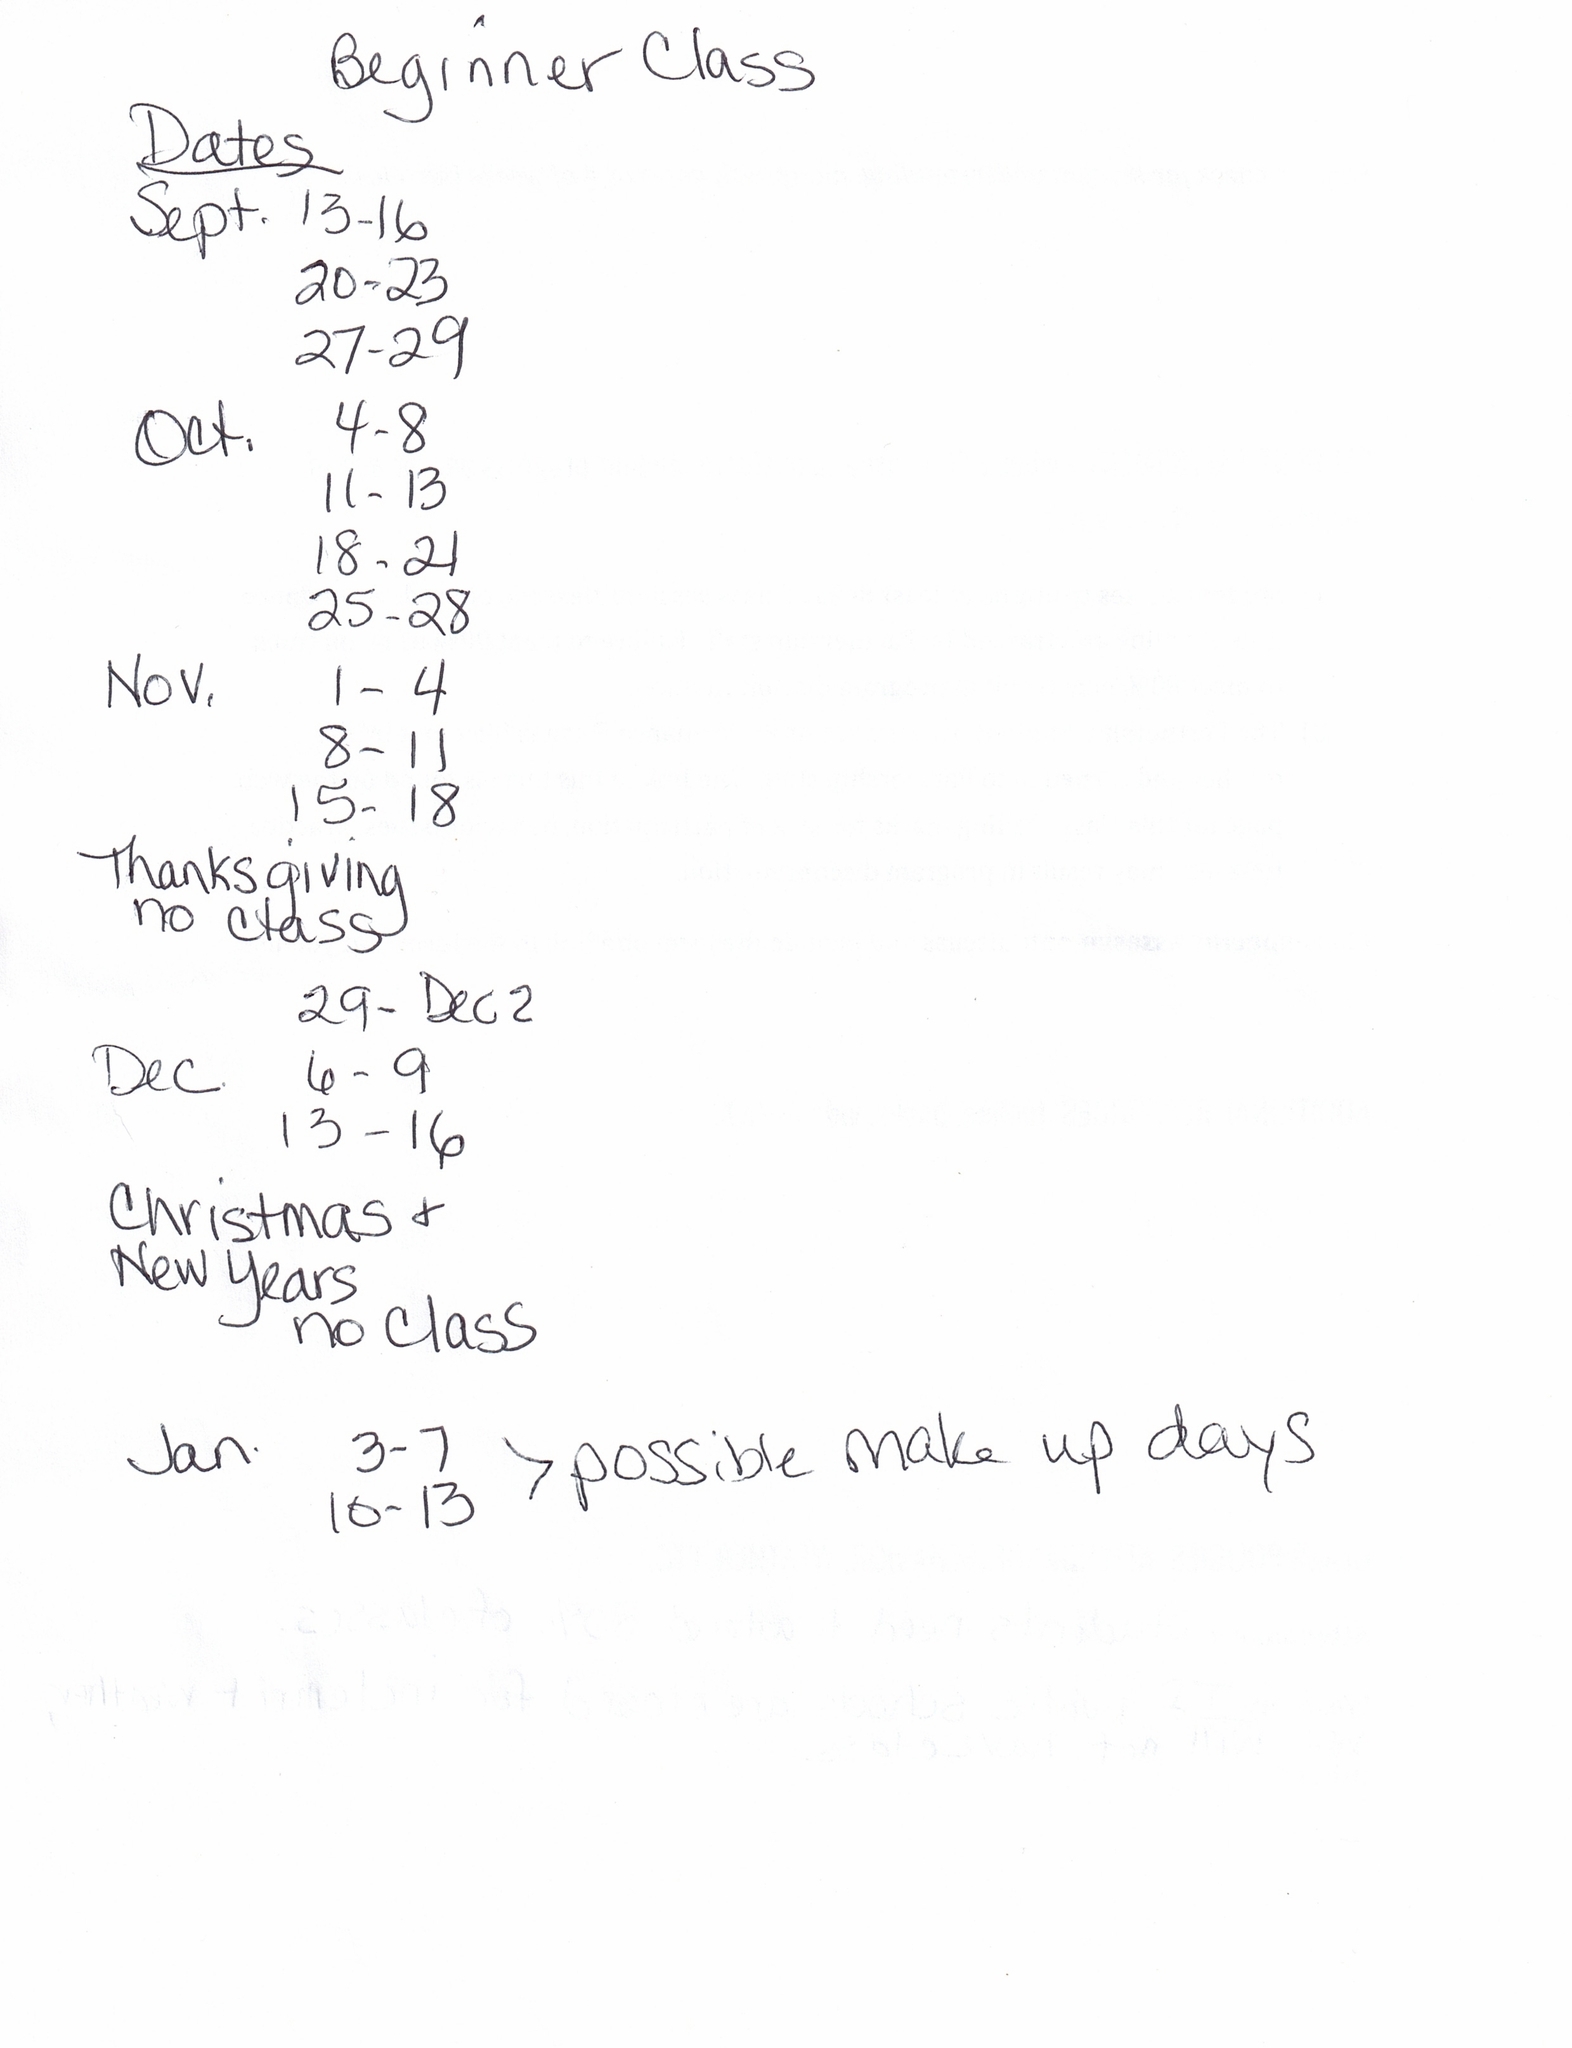 Beginner Class
Dates
Sept. 13-16
20-23
27-29
Oct. 4-8
11-13
18-21
25-28
Nov. 1-4
8-11
15-18
Thanksgiving
no class
29- Dec 2
Dec. 6-9
13-16
Christmas +
New Years
no Class
Jan. 3-7 > possible make up days
10-13